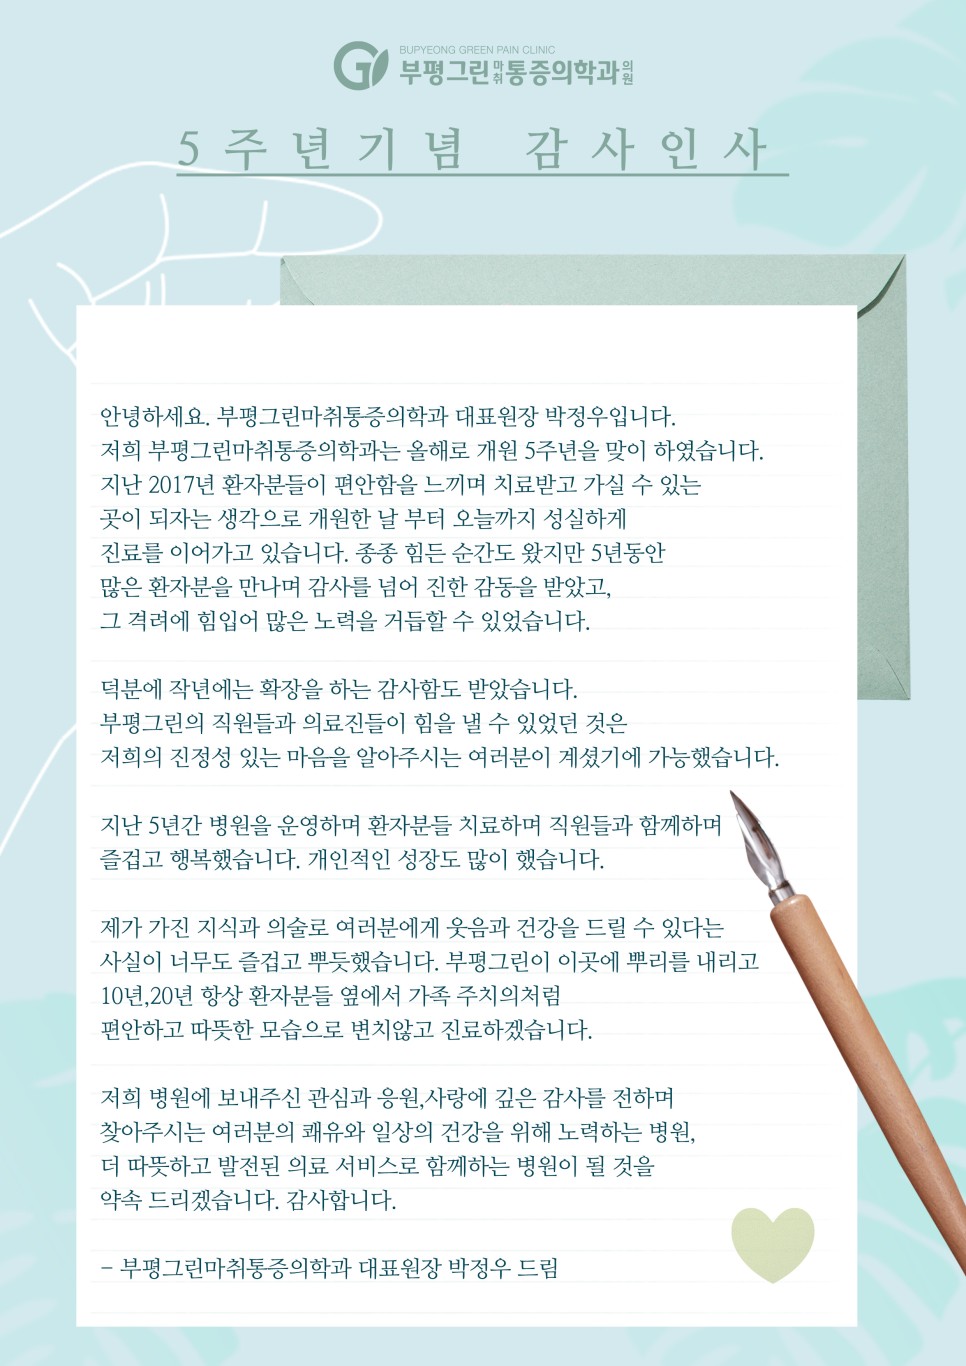 BUPYEONG GREEN PAIN CLINIC
부평그린마취통증의학과의원
5주년기념 감사인사
안녕하세요. 부평그린마취통증의학과 대표원장 박정우입니다.
저희 부평그린마취통증의학과는 올해로 개원 5주년을 맞이 하였습니다.
지난 2017년 환자분들이 편안함을 느끼며 치료받고 가실 수 있는
곳이 되자는 생각으로 개원한 날 부터 오늘까지 성실하게
진료를 이어가고 있습니다. 종종 힘든 순간도 왔지만 5년동안
많은 환자분을 만나며 감사를 넘어 진한 감동을 받았고,
그 격려에 힘입어 많은 노력을 거듭할 수 있었습니다.
덕분에 작년에는 확장을 하는 감사함도 받았습니다.
부평그린의 직원들과 의료진들이 힘을 낼 수 있었던 것은
저희의 진정성 있는 마음을 알아주시는 여러분이 계셨기에 가능했습니다.
지난 5년간 병원을 운영하며 환자분들 치료하며 직원들과 함께하며
즐겁고 행복했습니다. 개인적인 성장도 많이 했습니다.
제가 가진 지식과 의술로 여러분에게 웃음과 건강을 드릴 수 있다는
사실이 너무도 즐겁고 뿌듯했습니다. 부평그린이 이곳에 뿌리를 내리고
10년,20년 항상 환자분들 옆에서 가족 주치의처럼
편안하고 따뜻한 모습으로 변치않고 진료하겠습니다.
저희 병원에 보내주신 관심과 응원,사랑에 깊은 감사를 전하며
찾아주시는 여러분의 쾌유와 일상의 건강을 위해 노력하는 병원,
더 따뜻하고 발전된 의료 서비스로 함께하는 병원이 될 것을
약속 드리겠습니다. 감사합니다.
- 부평그린마취통증의학과 대표원장 박정우 드림